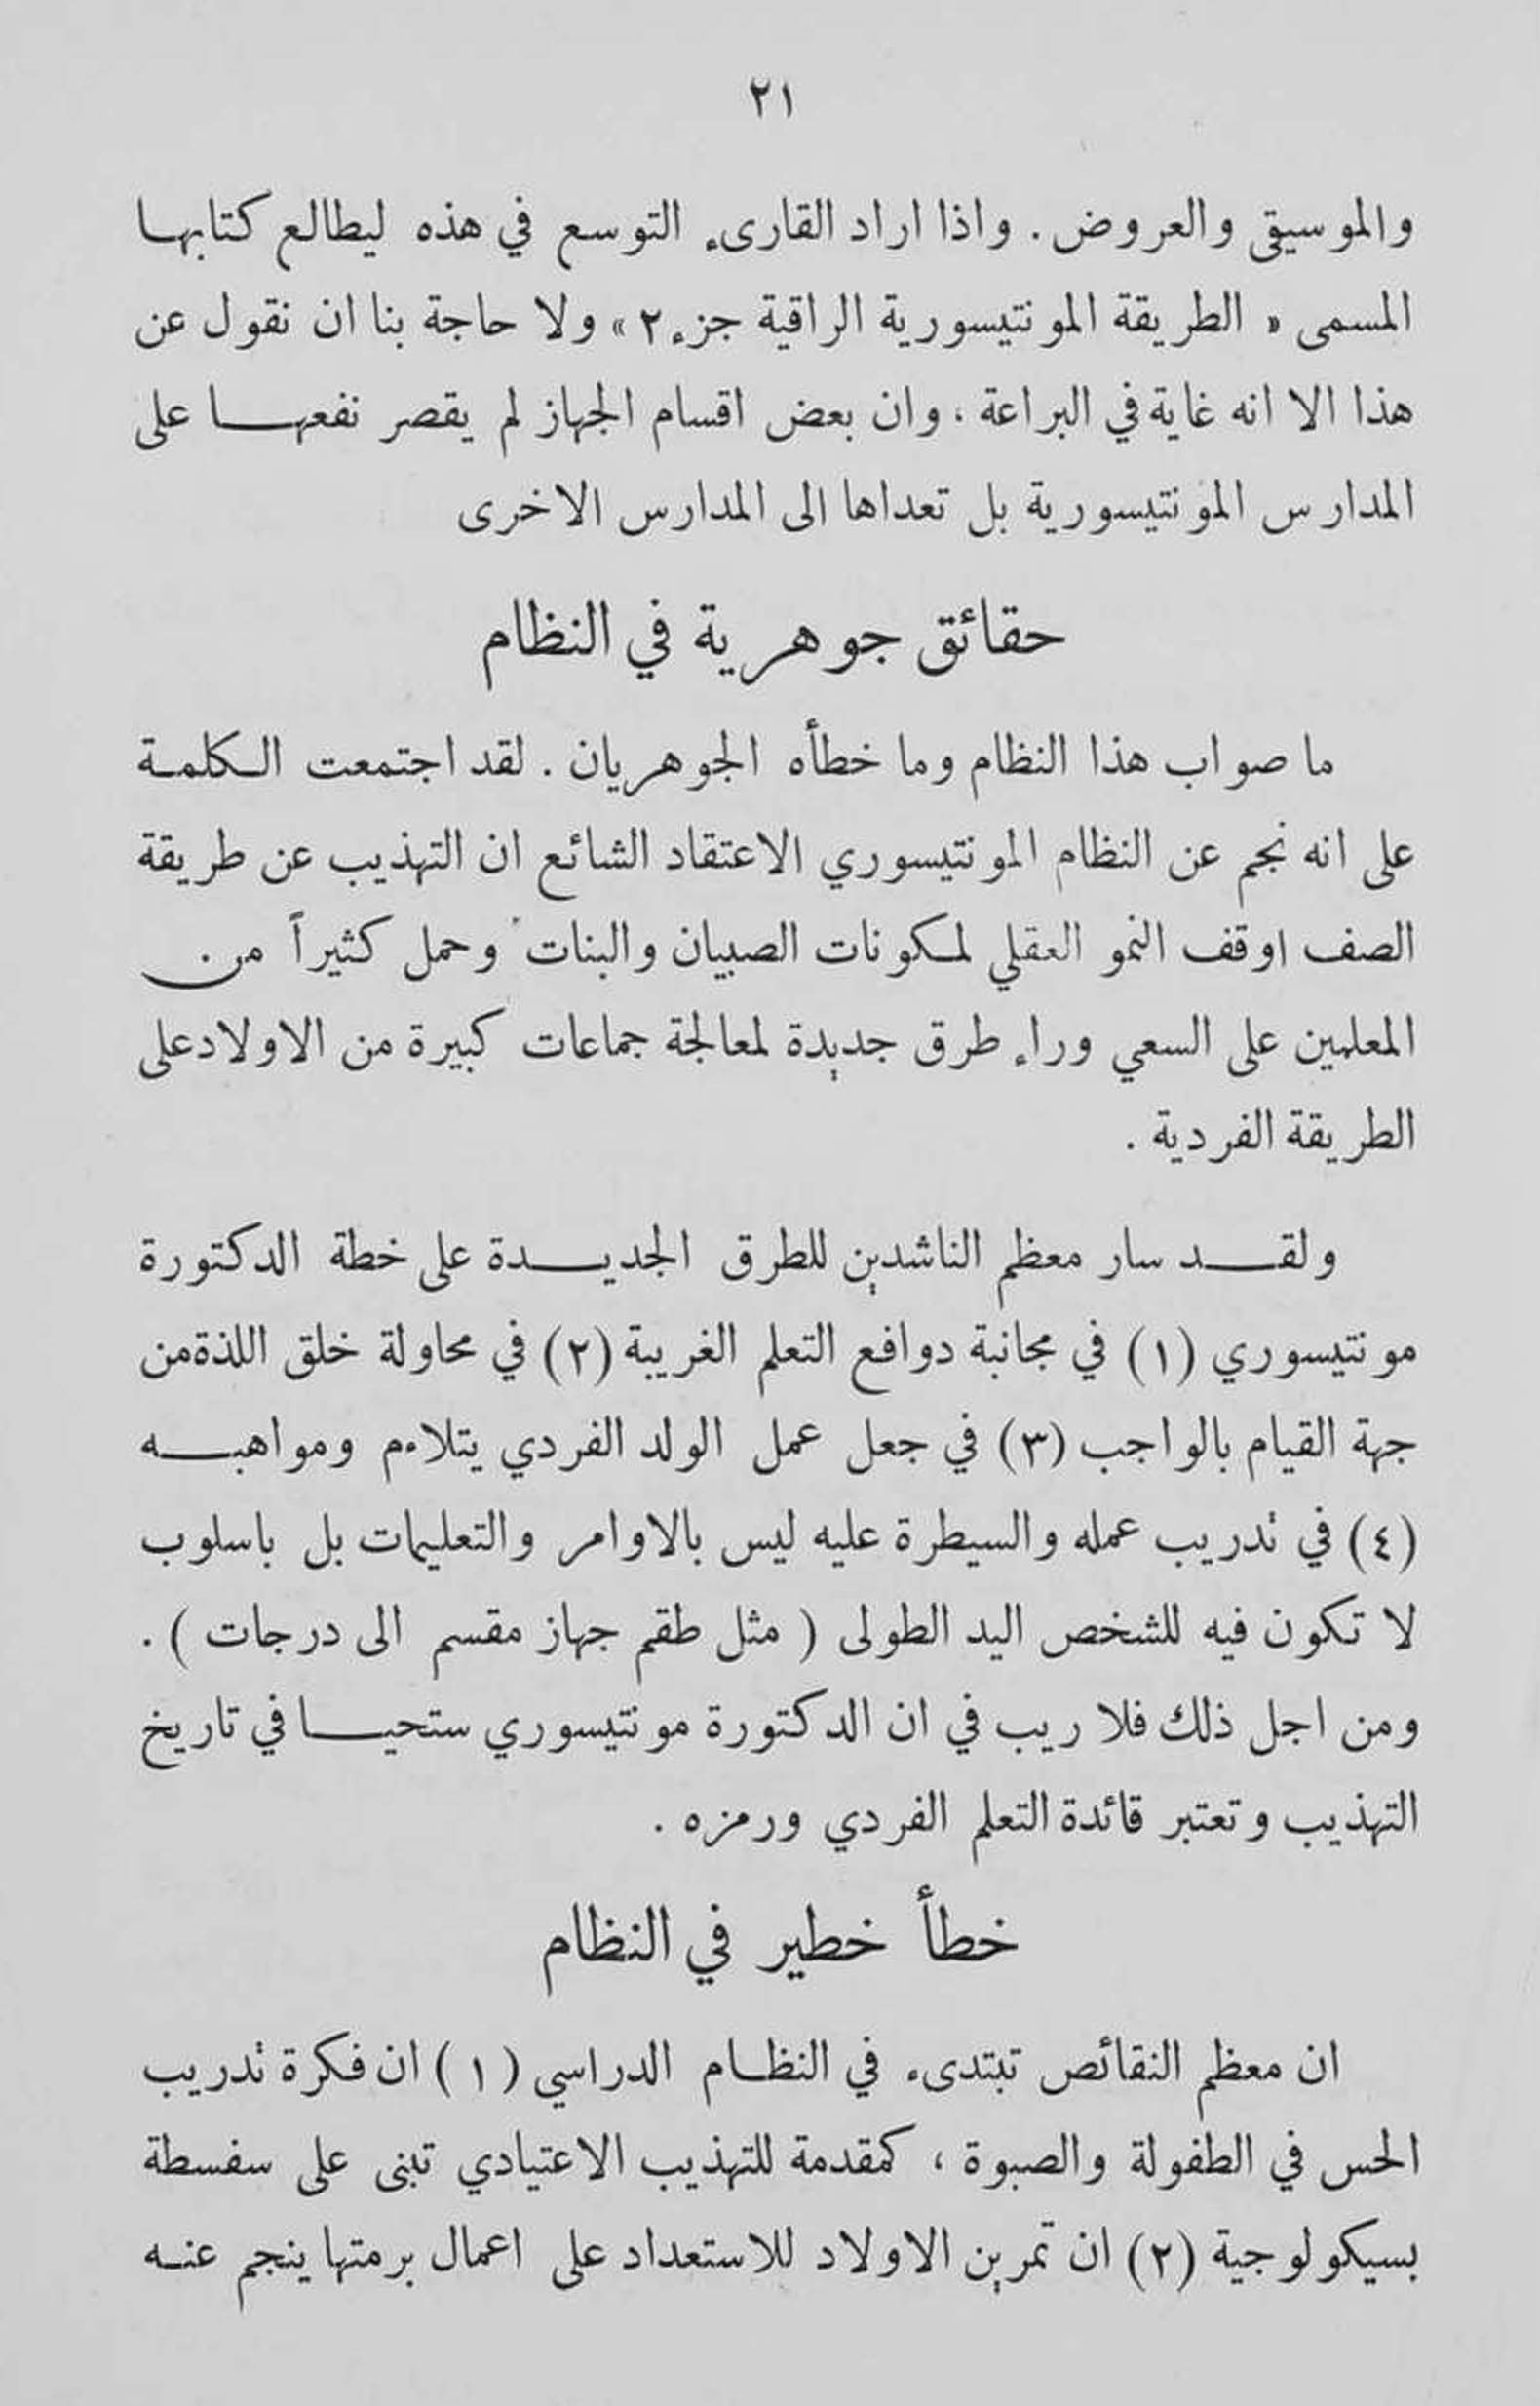 ٢١
والموسيقى والعروض. واذا اراد القارىء التوسع في هذه ليطالع كتابها
المسمى « الطريقة المونتيسورية الراقية جزء ٢ » ولا حاجة بنا ان نقول عن
هذا الا انه غاية في البراعة ، وان بعض اقسام الجهاز لم يقصر نفعها على
المدارس المونتيسورية بل تعداها الى المدارس الاخرى
حقائق جوهرية في النظام
ما صواب هذا النظام وما خطأه الجوهريان . لقد اجتمعت الكلمة
على انه نجم عن النظام المونتيسوري الاعتقاد الشائع ان التهذيب عن طريقة
الصف اوقف النمو العقلي لمكونات الصبيان والبنات وحمل كثيراً من
المعلمين على السعي وراء طرق جديدة لمعالجة جماعات كبيرة من الاولاد على
الطريقة الفردية .
ولقد سار معظم الناشدين للطرق الجديدة على خطة الدكتورة
مونتيسوري (١) في مجانبة دوافع التعلم الغريبة (٢) في محاولة خلق اللذة من
جهة القيام بالواجب (٣) في جعل عمل الولد الفردي يتلاءم ومواهبه
(٤) في تدريب عمله والسيطرة عليه ليس بالاوامر والتعليمات بل باسلوب
لا تكون فيه للشخص اليد الطولى ( مثل طقم جهاز مقسم الى درجات ) .
ومن اجل ذلك فلا ريب في ان الدكتورة مونتيسوري ستحيا في تاريخ
التهذيب وتعتبر قائدة التعلم الفردي ورمزه .
خطأ خطير في النظام
ان معظم النقائص تبتدىء في النظام الدراسي (١) ان فكرة تدريب
الحس في الطفولة والصبوة ، كمقدمة للتهذيب الاعتيادي تبنى على سفسطة
بسيكولوجية (٢) ان تمرين الاولاد للاستعداد على اعمال برمتها ينجم عنه